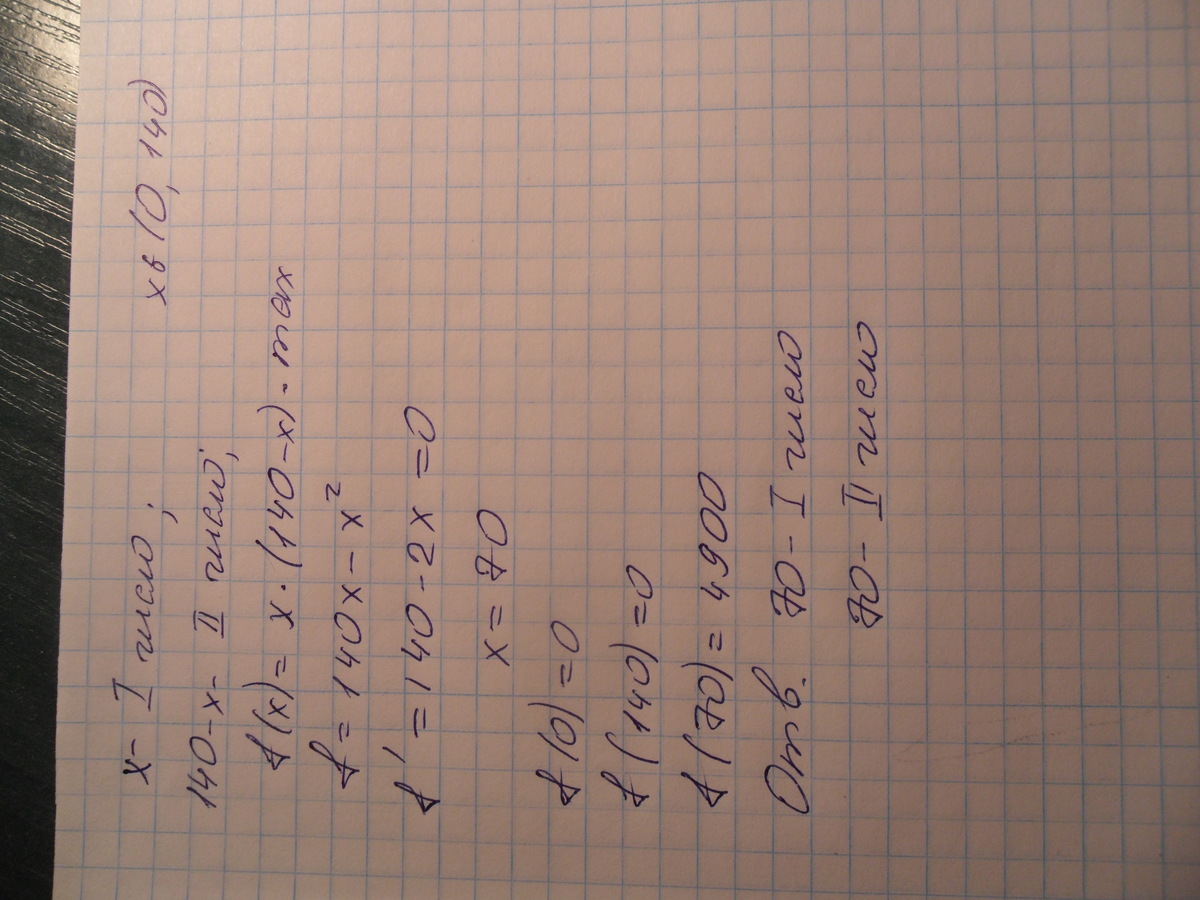 x - I число;
140-x- II число; x в (0, 140)
f(x) = x·(140-x) - max
f = 140x - x²
f' = 140-2x = 0
x = 70
f(0) = 0
f(140) = 0
f(70) = 4900
Отв. 70 - I число
70 - II число